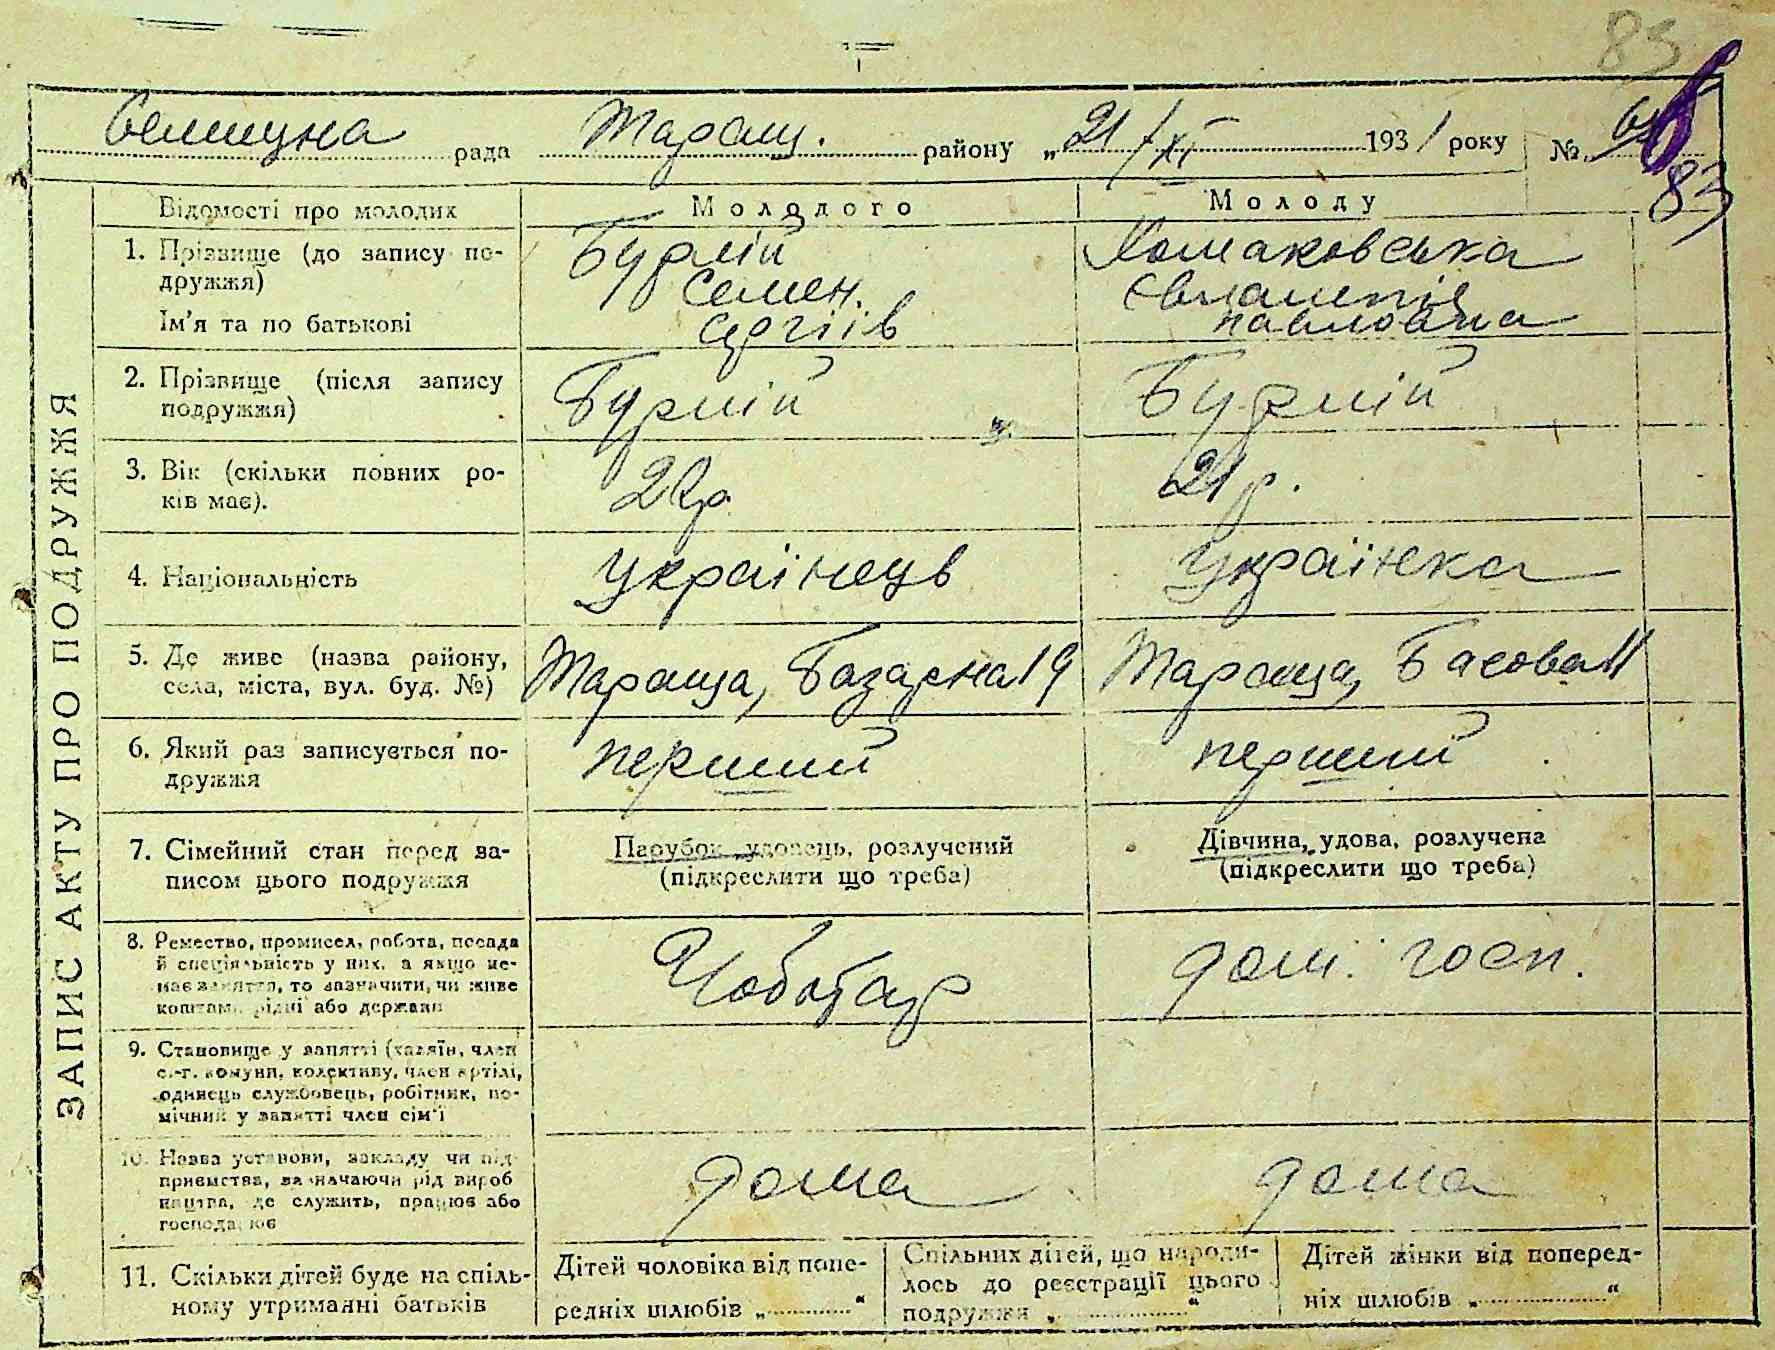 83
Селищна рада Таращ. району „21/XI 1931 року №
83
ЗАПИС АКТУ ПРО ПОДРУЖЖЯ
Відомості про молодих
Молодого
Молоду
1. Прізвище (до запису по-
дружжя)
Ім'я та по батькові
Бурлій
Семен.
Сергіїв
Хомаковська
Євлампія
Павловна
2. Прізвище (після запису
подружжя)
Бурлій
Бурлій
3. Вік (скільки повних ро-
ків має).
22р.
21р.
4. Національність
Українець
Українка
5. Де живе (назва району,
села, міста, вул. буд. №)
Тараща, Базарна 19
Тараща, Басова 11
6. Який раз записується по-
дружжя
перший
перший
7. Сімейний стан перед за-
писом цього подружжя
Парубок, удовець, розлучений
(підкреслити що треба)
Дівчина, удова, розлучена
(підкреслити що треба)
8. Ремество, промисел, робота, посада
й спеціяльність у них, а якщо не-
має заняття, то зазначити, чи живе
коштами рідні або держави
Чоботар
дом. госп.
9. Становище у занятті (хазяїн, член
с.-г. комуни, колективу, член артілі,
одинець службовець, робітник, по-
мічний у занятті член сім'ї
10. Назва установи, закладу чи під-
приємства, зазначаючи рід вироб
ництва, де служить, працює або
господарює
дома
дома
11. Скільки дітей буде на спіль-
ному утриманні батьків
Дітей чоловіка від попе-
редніх шлюбів „ “
Спільних дітей, що народи-
лось до реєстрації цього
подружжя „ “
Дітей жінки від поперед-
ніх шлюбів „ “